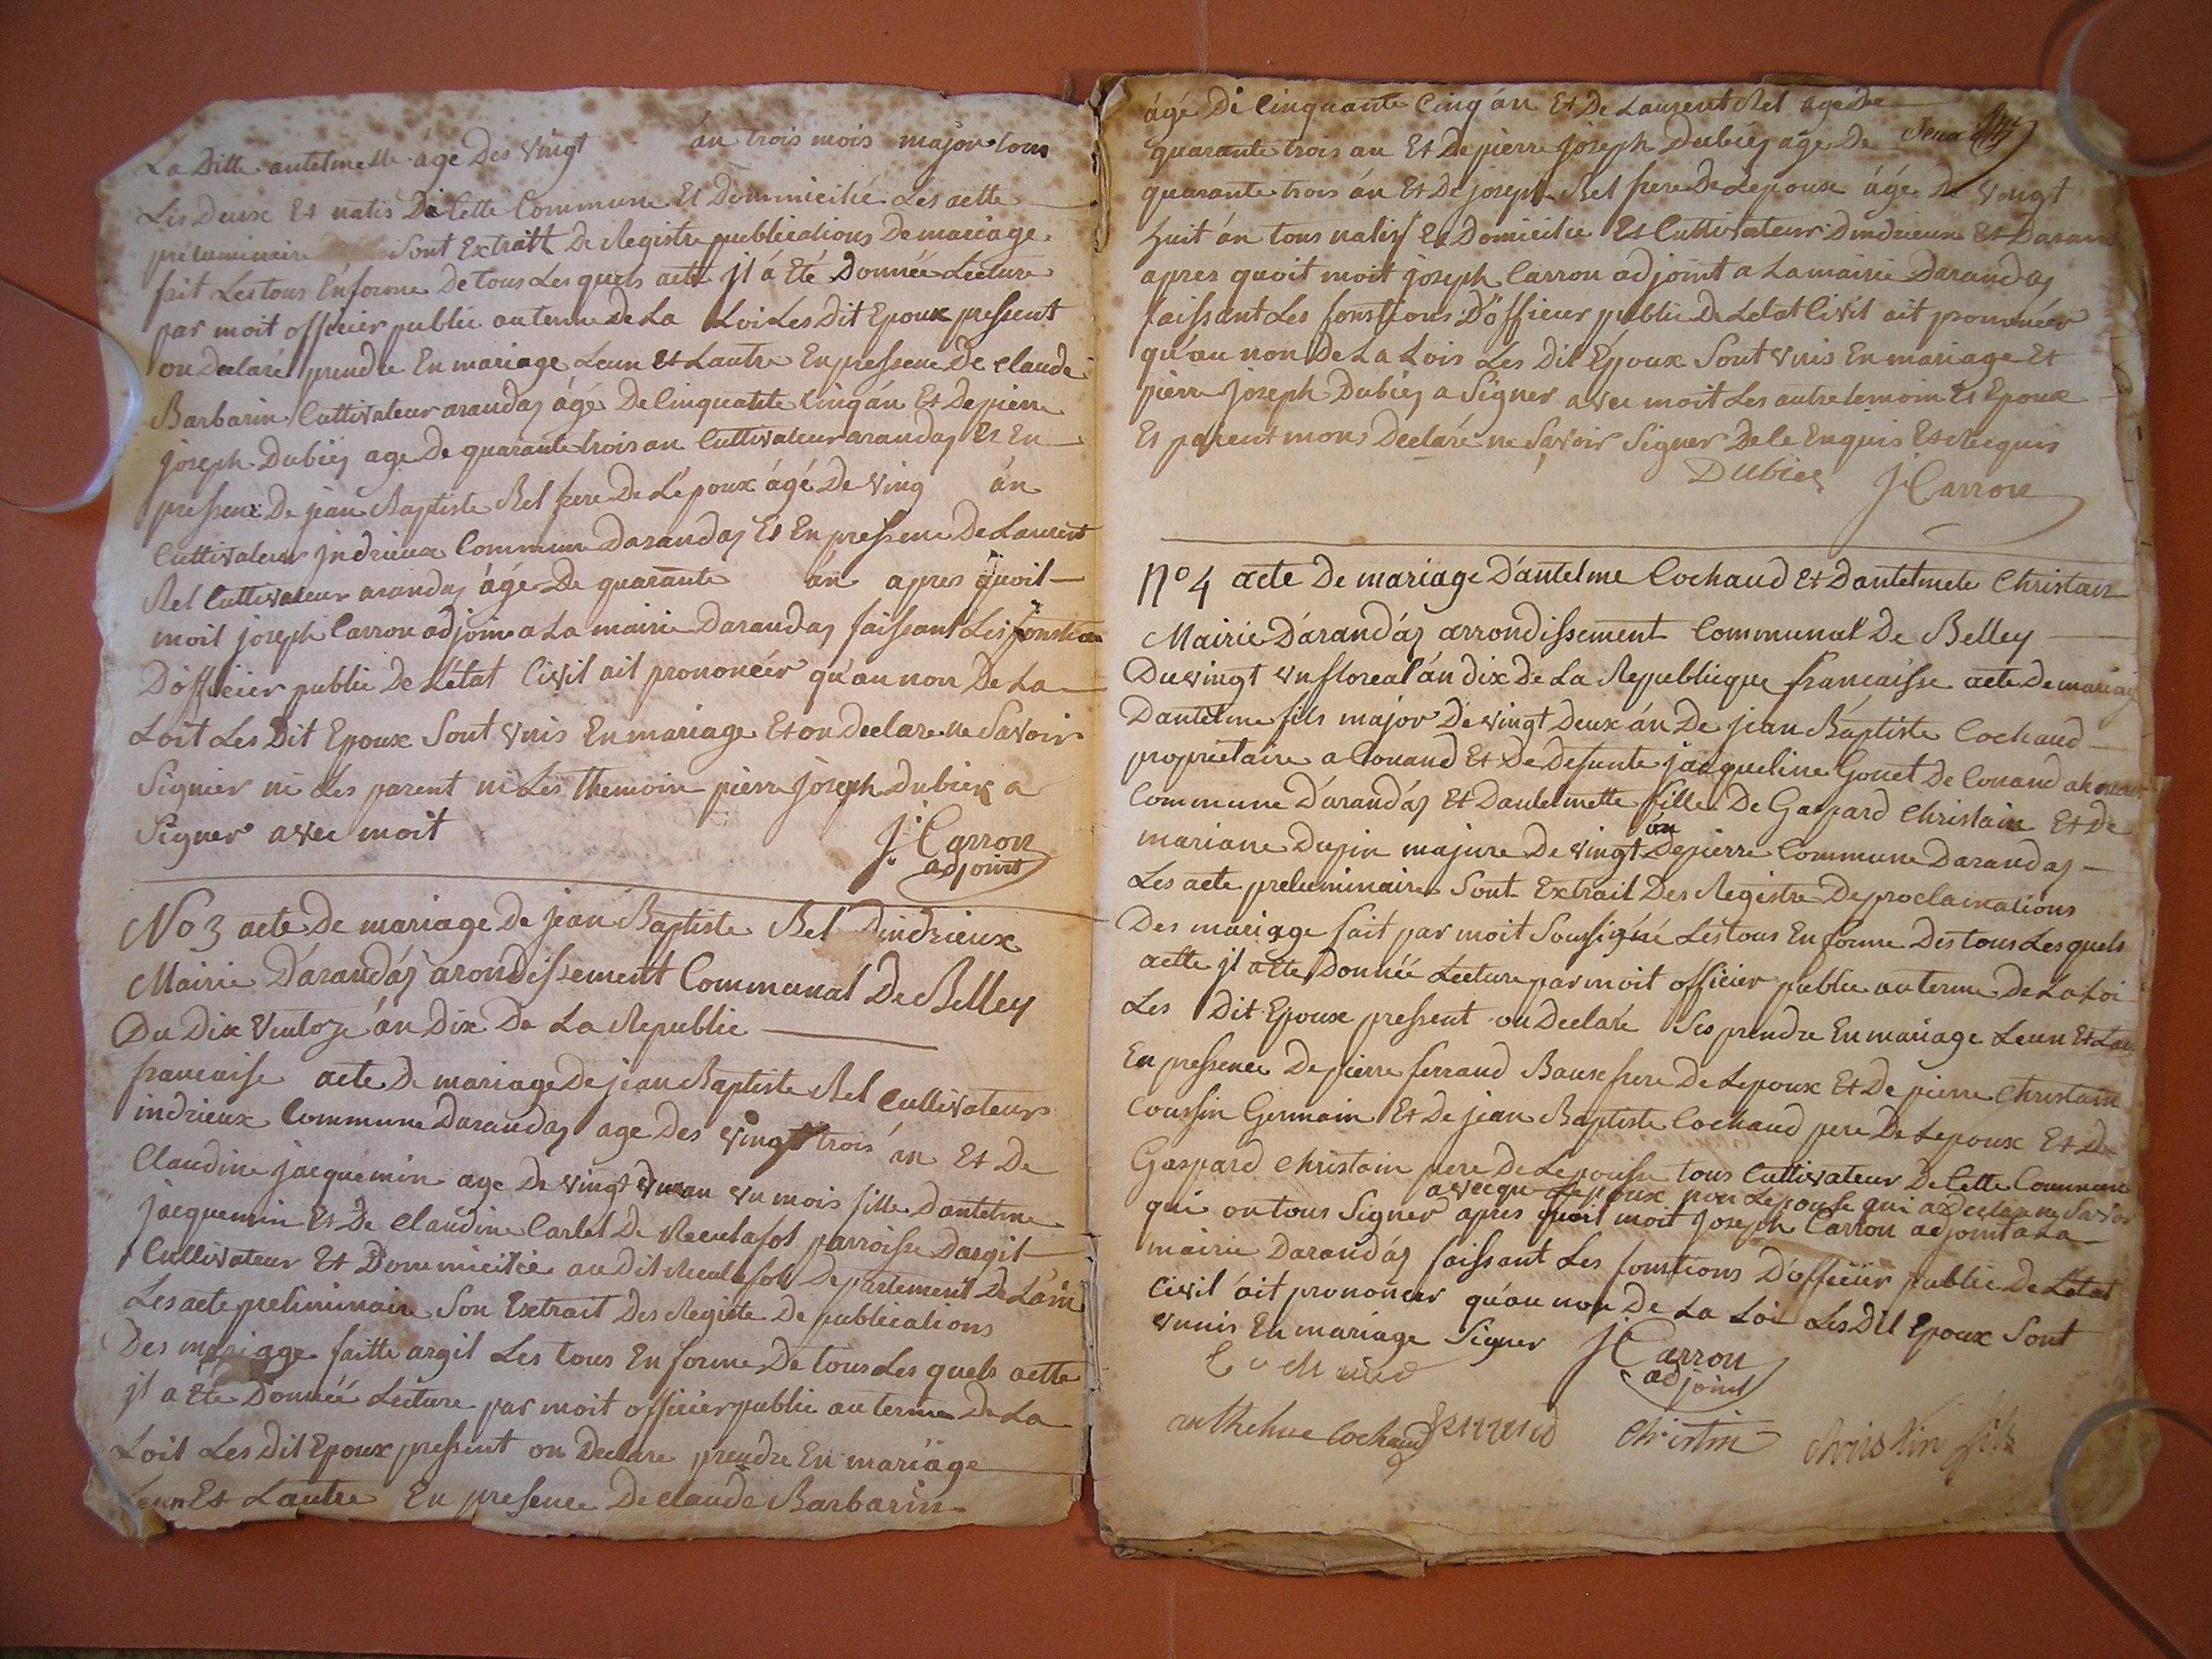 La Ditte antelmette âgé Des vingt án trois mois major tous
Les Deux Et natis De Cette Commune Et Dommicilié Les actte
préluminaire Sont Extraitt De Registre publications De mariage
fait Les tous Enforme De tous Les quels actt jl á Eté Donnée Lecture
par moit officier public au terme De La Loi Les Dit Epoux pressent
on Declaré prendre En mariage Leun et Lautre En pressene De Claude
Barbarin Cultivateur arandaz ágé De Cinquante Cinq án Et De pierre
joseph Dubiez age De quarante trois an Cultivateur arandaz Et En
pressene De jean Baptiste Rel frere De L'époux ágé De ving án
Cultivateur jndrieux Commune Darandaz Et En pressene De Laurent
Rel Cultivateur arandaz ágé De quarante án apres quoit
moit joseph Carron adjoint a La mairie Darandaz faissant Les fonstion
D'officier public De L'état Civil ait prononcér qu'au non De La
Loit Les Dit Epoux Sont vnis En mariage Et on Declare ne Savoir
Signier ni Les parent ni Les themoin pierre joseph Dubiez a
Signer avec moit J. Carron
adjoint
No 3 acte De mariage De jean Baptiste Rel Dindrieux
Mairie D'arandáz arondissement Communal De Belley
Du Dix Ventoze án Dix De La Republic
francaisse acte De mariage De jean Baptiste Rel Cultivateur
indrieux Commune Darandaz age Des vingt trois án Et De
Claudine jacquemin age De vingt vn an vn mois fille Dantelme
jacquemin Et De Claudine Carlet De Reculafol parroisse Dargit
Cultivateur Et Dommicilié au Dit Reculafol Departement De Lain
Les acte preliminair Son Extrait Des Registe De publications
Des mariage faitte argit Les tous En forme De tous Les quels actte
jl a Eté Donnéé Lecture par moit officier public au terme De La
Loit Les Dit Epoux pressent on Declare prendre En mariâge
Leun Et Lautre En presence De claude Barbarin
ágé De Cinquante Cinq án Et De Laurent Rel age De
quarante trois an Et De pierre joseph Dubiez age De
quarante trois án Et De joseph Rel frere De Lepoux ágé De vingt
huit án tous natif Et Domicilie Et Cultivateur Dindrieux Et Daran
apres quoit moit joseph Carron adjoint a La mairie Darandaz
faissant Les fonstions D'officier public De Letat Civil ait prononcér
qu'au non De La Lois Les Dit Epoux Sont vnis En mariage Et
pierre joseph Dubiez a Signer avec moit Les autre temoin Et Epoux
Et parent mons Declaré ne Savoir Signer De le Enquis Et Requis
Dubiez J. Carron
No 4 acte De mariage D'antelme Cochaud Et Dantelmete Christain
Mairie D'arandáz arrondissement Communal De Belley
Du vingt vn floreal án dix De La Republicque francaisse acte De mariag
Dantelme fils major De vingt Deux án De jean Báptiste Cochaud
proprietaire a Conand Et De Defunte jacqueline Gouet De Conand
Commune D'arandáz Et Dantelmette fille De Gaspard Christain Et De
mariane Dupin majure De vingt án De pierre Commune Darandaz
Les acte preluminaire Sont Extrait Des Registre De proclamations
Des mariage fait par moit Soussigné Les tous En forme Des tous Les quels
actte jl a Ete Donnée Lecture par moit officier public au terme De La Loi
Les Dit Epoux pressent on Declaré Ses prendre En mariage Leun Et Lau
En pressence De pierre ferrand Beauxfrere De Lepoux Et De pierre Christain
Coussin Germain Et De jean Baptiste Cochaud pere De Lepoux Et De
Gaspard Christain pere De Lepousse tous Cultivateur De Cette Commune
avecque Lepoux non Lepouse qui a Declare ne Savoir
qui on tous Signer apres quoit moit Joseph Carron adjoint a La
mairie Darandáz faissant Les fonstions D'officier public De L'état
Civil áit prononcer qu'au non De La Loi Les Dit Epoux Sont
vnnis En mariage Signer J. Carron
adjoint
Cochaud
anthelme Cochaud ferrand Christin Christin fils